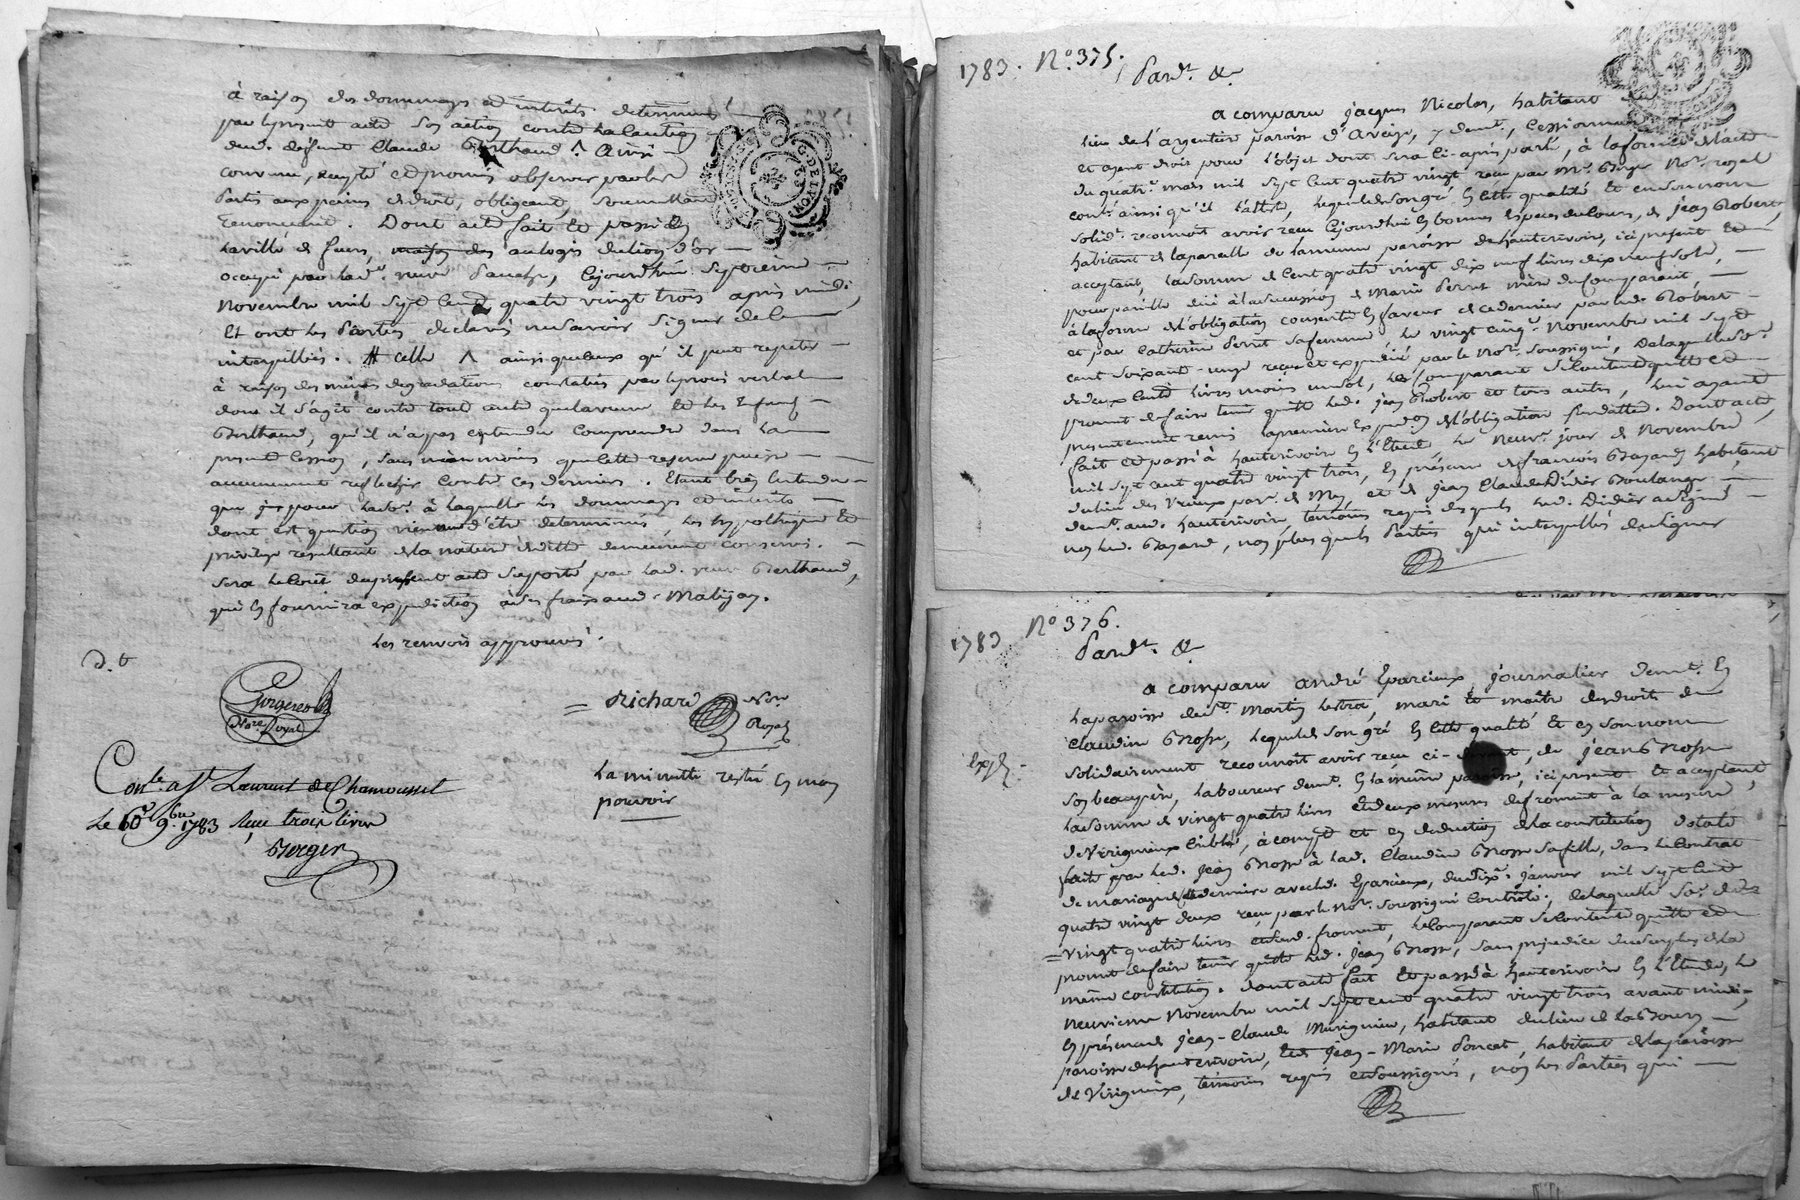 à raison des dommages et intérêts déterminés
par le présent acte son action contre la caution
dud. deffunt Claude Berthaud ^. Ainsi
convenu, accepté et promis observer par les
Parties aux peines de droit, obligeant, soumettant
Renonceant. Dont acte fait et passé en
la ville de feurs, maison des au logis du lion d'or
occupé par lad. veuve Cejourd'hui septième
Novembre mil sept cent quatre vingt trois après midi,
Et ont les Parties déclaré ne savoir signer de ce
interpellées. # celle ^ ainsi que ceux qu'il peut repeter
à raison des mêmes degradations constatées par le procès verbal
dont il s'agit contre tout autre que la veuve Et les Enfans
Berthaud, qu'il n'a pas entendu Comprendre dans la
presente Cession, sans néanmoins que cette reserve puisse
aucunement reflechir contre ces derniers. Etant bien entendu
que jusques à laquelle les dommages et intérêts
dont est question viennent d'être determinés, les hypothèques et
privilege resultant de la nature dicelle demeurent conservés.
sera le Coût du présent acte suporté par lad. veuve Berthaud,
qui en fournira expédition à ses fraix aud. Matijay.
Les renvois approuvés.
d. t
Gorgeret
No.re Royal
= Richard Nore
Royal
La minutte restée en mon
pouvoir
Con.lé a St Laurent de Chamousset
Le 9.bre 1783 Reçu trois livres
Berger
G. DE LYON
1783. No. 375.
Pardt. &
a comparu jacques Nicolas, habitant du
lieu de l'argentière paroisse d'Aveize, y demt., Cessionnaire
et ayant droit pour l'objet dont sera ci-après parlé, à la forme de l'acte
du quatre. mars mil sept cent quatre vingt reçu par Me. Not. royal
contr. ainsi qu'il l'atteste, Lequel de son gré En cette qualité Et en son nom
solidt. reconnoît avoir reçu Cejourd'hui En bonnes Especes du Cours, de jean Robert,
habitant de la paroisse de hauterivoire, ici present Et
acceptant, la somme de Cent quatre vingt dix neuf livres dix neuf sols,
pour pareille due à la succession de Marie Perret mère du Comparant,
à la forme de l'obligation consentie En faveur de ce dernier par led. Robert
et par Catherine Perret sa femme Le vingt cinq. Novembre mil sept
cent soixante-onze reçue et expédiée par le Nore. soussigné, De laquelle so.e
de deux Cents livres moins un sol, le Comparant se contente quitte et
promet de faire tenir quitte led. jean Robert et tous autres, lui ayant
presentement remis la premiere Expedon de l'obligation fondatte. Dont acte,
fait et passé à hauterivoire En l'Etude Le neuve. jour de Novembre
mil sept cent quatre vingt trois, En présence de francois Bazard habitant
du lieu des Vreux par. de Mey, et de Jean Claude Didier Boulanger
demt. aud. hauterivoire, témoins requis desquels led. Didier a signé
non led. Bazard, non plus que les Parties qui interpellés de signer
1783 No 376.
Pardt. &
a comparu andré Eparcieux journalier demt. En
la paroisse de st. Martin Lestra, mari Et maître des droits de
Claudine Brosse, Lequel de son gré En cette qualité Et en son nom
expn.
solidairement reconnoît avoir reçu ci- , de jean Brosse
son beaupère, laboureur demt. En la même paroisse, ici présent Et acceptant,
la somme de vingt quatre livres Et deux mesures de froment à la mesure
de Virigneux Comble, à compte et en deduction de la constitution dotale
faite par led. Jean Brosse à lad. Claudine Brosse sa fille, dans le Contrat
de mariage de cette derniere avec led. Eparcieux, du dixe. janvier mil sept cent
quatre vingt deux reçu par le Nore. soussigné Controlé; De laquelle so.e de
= Vingt quatre livres et dud. froment le Comparant se contente quitte et
promet de faire tenir quitte led. Jean Brosse, sans prejudice du surplus de la
même constitution. dont acte fait Et passé à hauterivoire En l'Etude, le
neuvième Novembre mil sept cent quatre vingt trois avant midi,
En présence de jean-Claude Murigneu, habitant du lieu de la Bourn
paroisse de hauterivoire, Et de jean-Marie Poncet, habitant de la paroisse
de Virigneux, témoins requis et soussignés, non les Parties qui